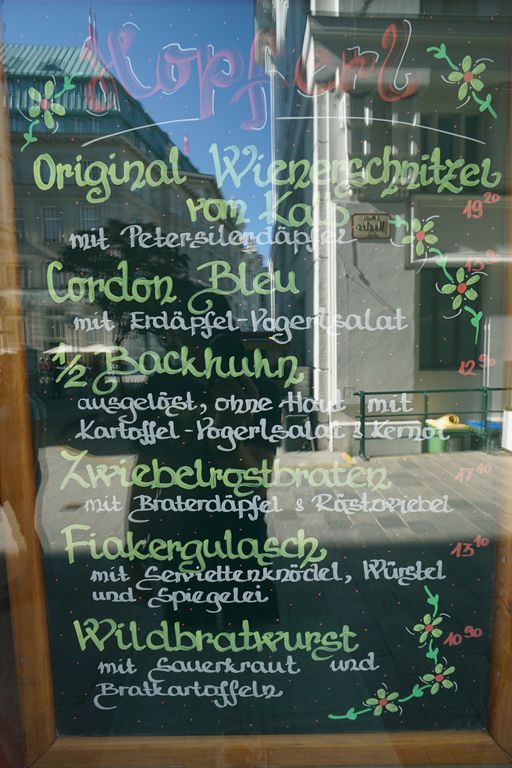 Hopferl
Original Wienerschnitzel
vom Kalb
19 20
mit Petersilerdäpfel
Cordon Bleu
mit Erdäpfel-Vogerlsalat
1/2 Backhuhn
12 90
ausgelöst, ohne Haut mit
Kartoffel-Vogerlsalat & Kernöl
Zwiebelrostbraten
17 10
mit Braterdäpfel & Röstzwiebel
Fiakergulasch
13 10
mit Serviettenknödel, Würstel
und Spiegelei
Wildbratwurst
10 90
mit Sauerkraut und
Bratkartoffeln